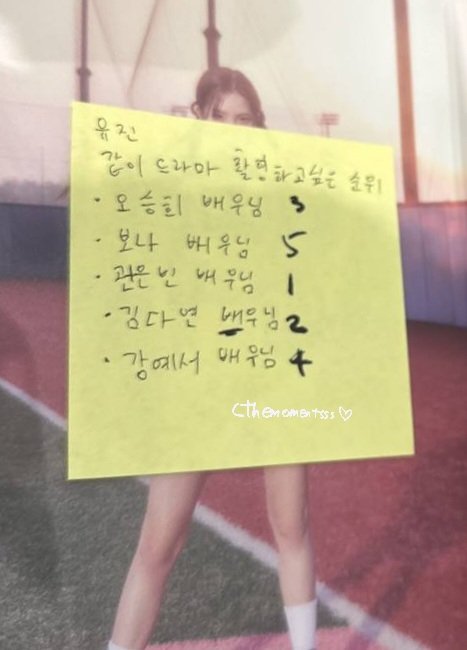 유진
같이 드라마 촬영하고싶은 순위
· 오승희 배우님 3
· 보나 배우님 5
· 권은빈 배우님 1
· 김다연 배우님 2
· 강예서 배우님 4
cthemomentsss♡